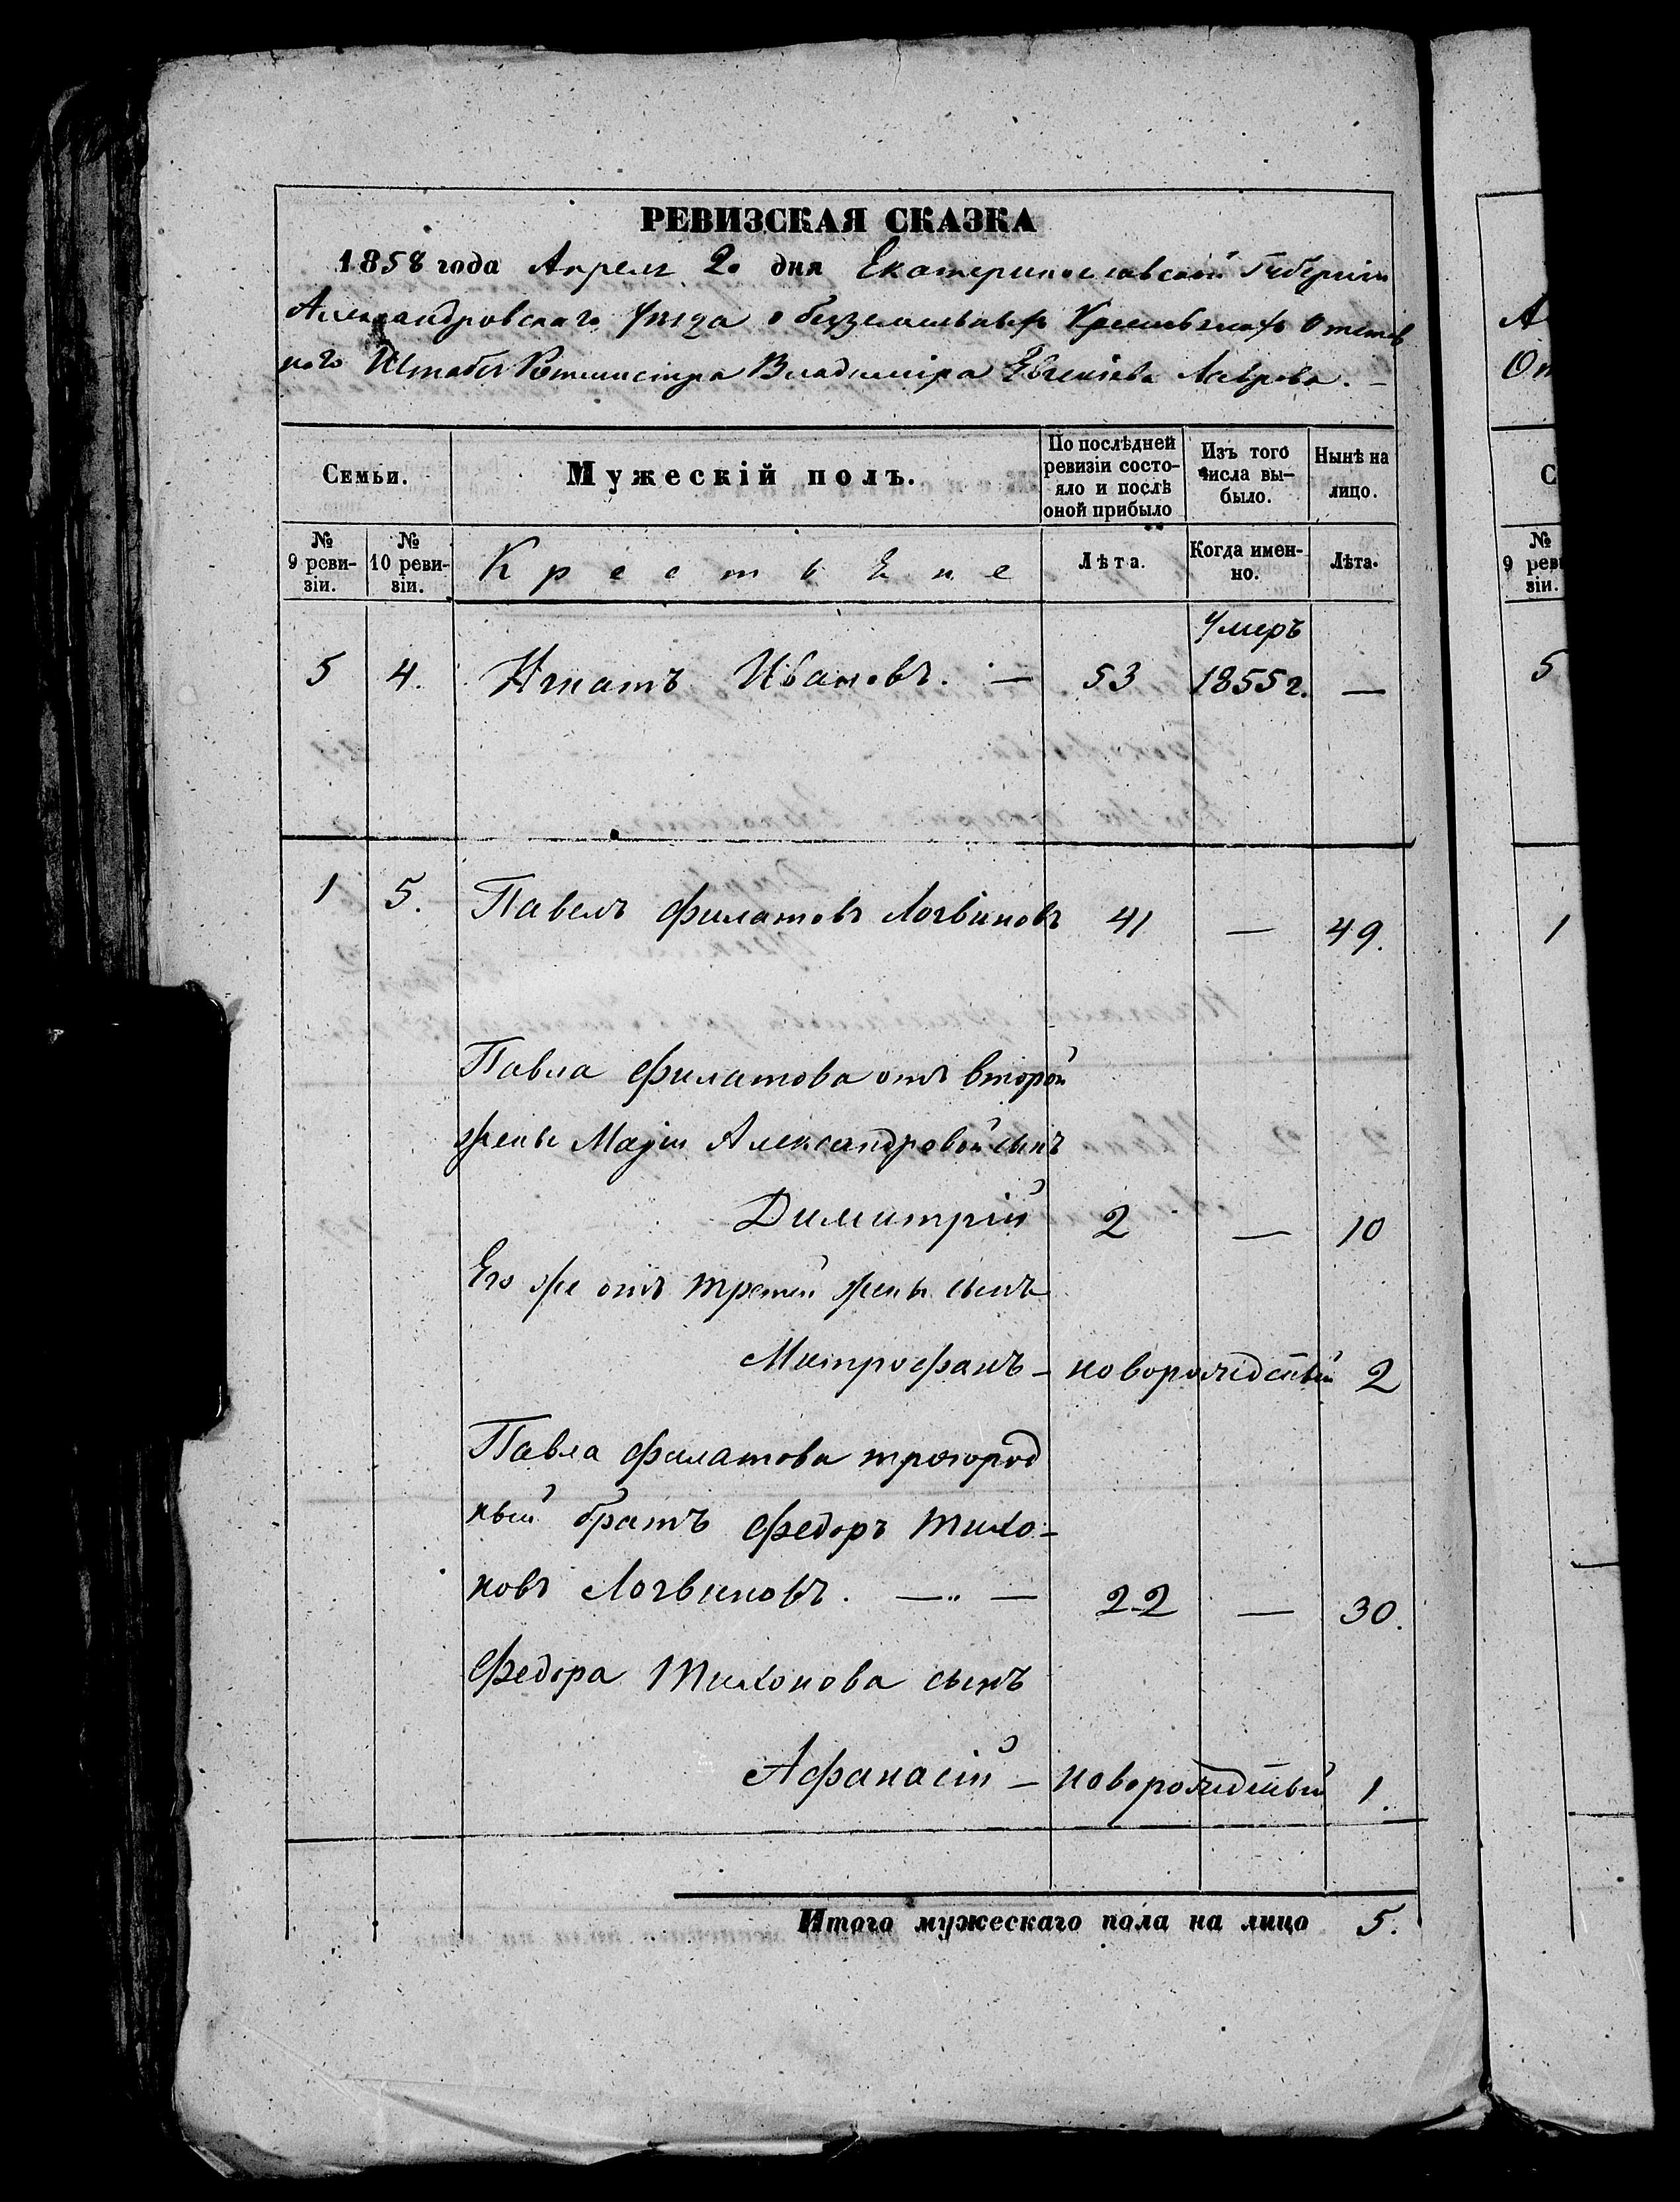 РЕВИЗСКАЯ СКАЗКА
1858 года Апреля 20 дня Екатеринославской Губерніи
Александровскаго Уѣзда о безземельныхъ Крестьянахъ Отстав
наго Штабсъ Ротмистра Владиміра Евгеніева Лаврова. —
Семьи.
Мужескій полъ.
По послѣдней ревизіи состо-
яло и послѣ
оной прибыло
Изъ того
числа вы-
было.
Нынѣ на
лицо.
№
9 реви-
зіи.
№
10 реви-
зіи.
Крестьяне
Лѣта.
Когда имен-
но.
Лѣта.
Умеръ
5 4. Игнатъ Ивановъ. — 53 1855 г. —
1 5. Павелъ Филатовъ Логвиновъ 41 — 49.
Павла Филатова отъ второй
жены Маріи Александровой сынъ
Димитрій 2 — 10
Его же отъ третей жены сынъ
Митрофанъ — новорожденый 2
Павла Филатова троюрод
ный братъ Федоръ Тихо-
новъ Логвиновъ. —„— 22 — 30.
Федора Тихонова сынъ
Афанасій — новорожденый 1.
Итого мужескаго пола на лицо 5.
А
От
С
№
9 реви
зіи.
5
1